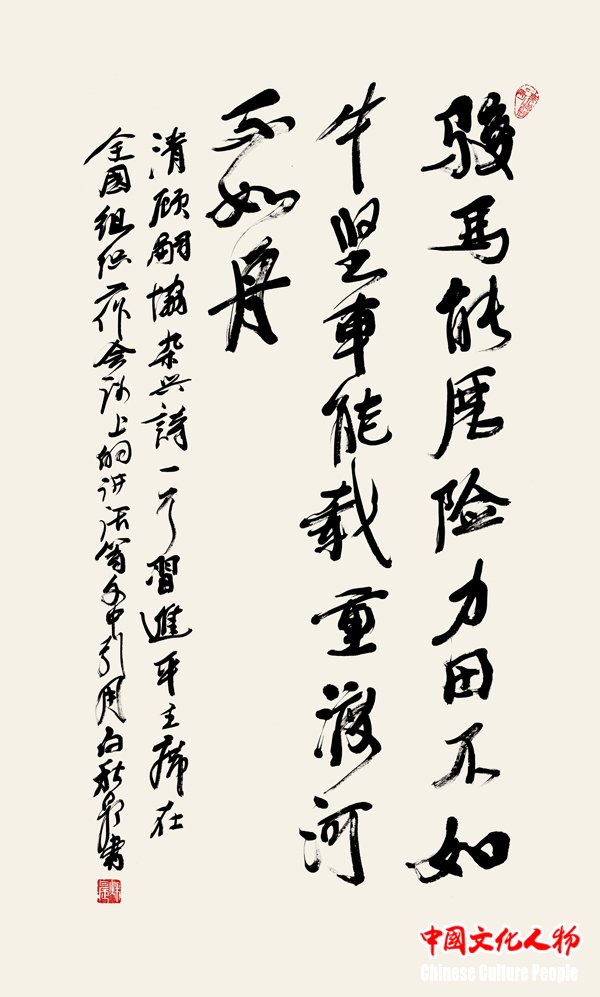 骏马能历险力田不如
牛坚车能载重渡河
不如舟
清顾嗣协杂兴詩一首習進平主席在
全国组织工作会议上的讲话等文中引用白秋
中國文化人物
Chinese Culture People